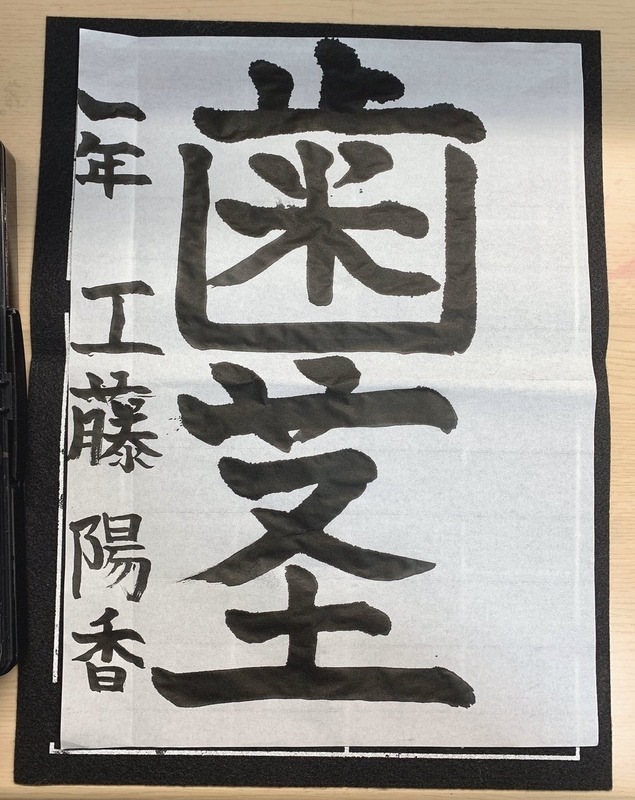 歯茎
一年 工藤 陽香